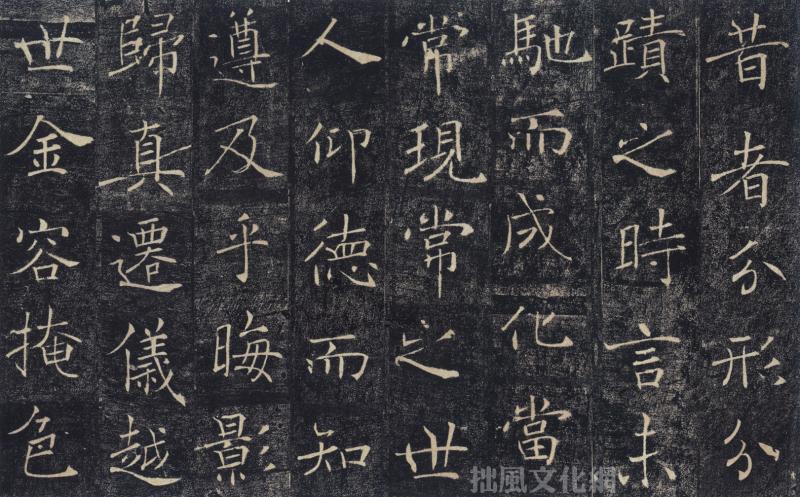 昔者分形分
蹟之時言未
馳而成化當
常現常之世
人仰德而知
遵及乎晦影
歸真遷儀越
世金容掩色
拙風文化網